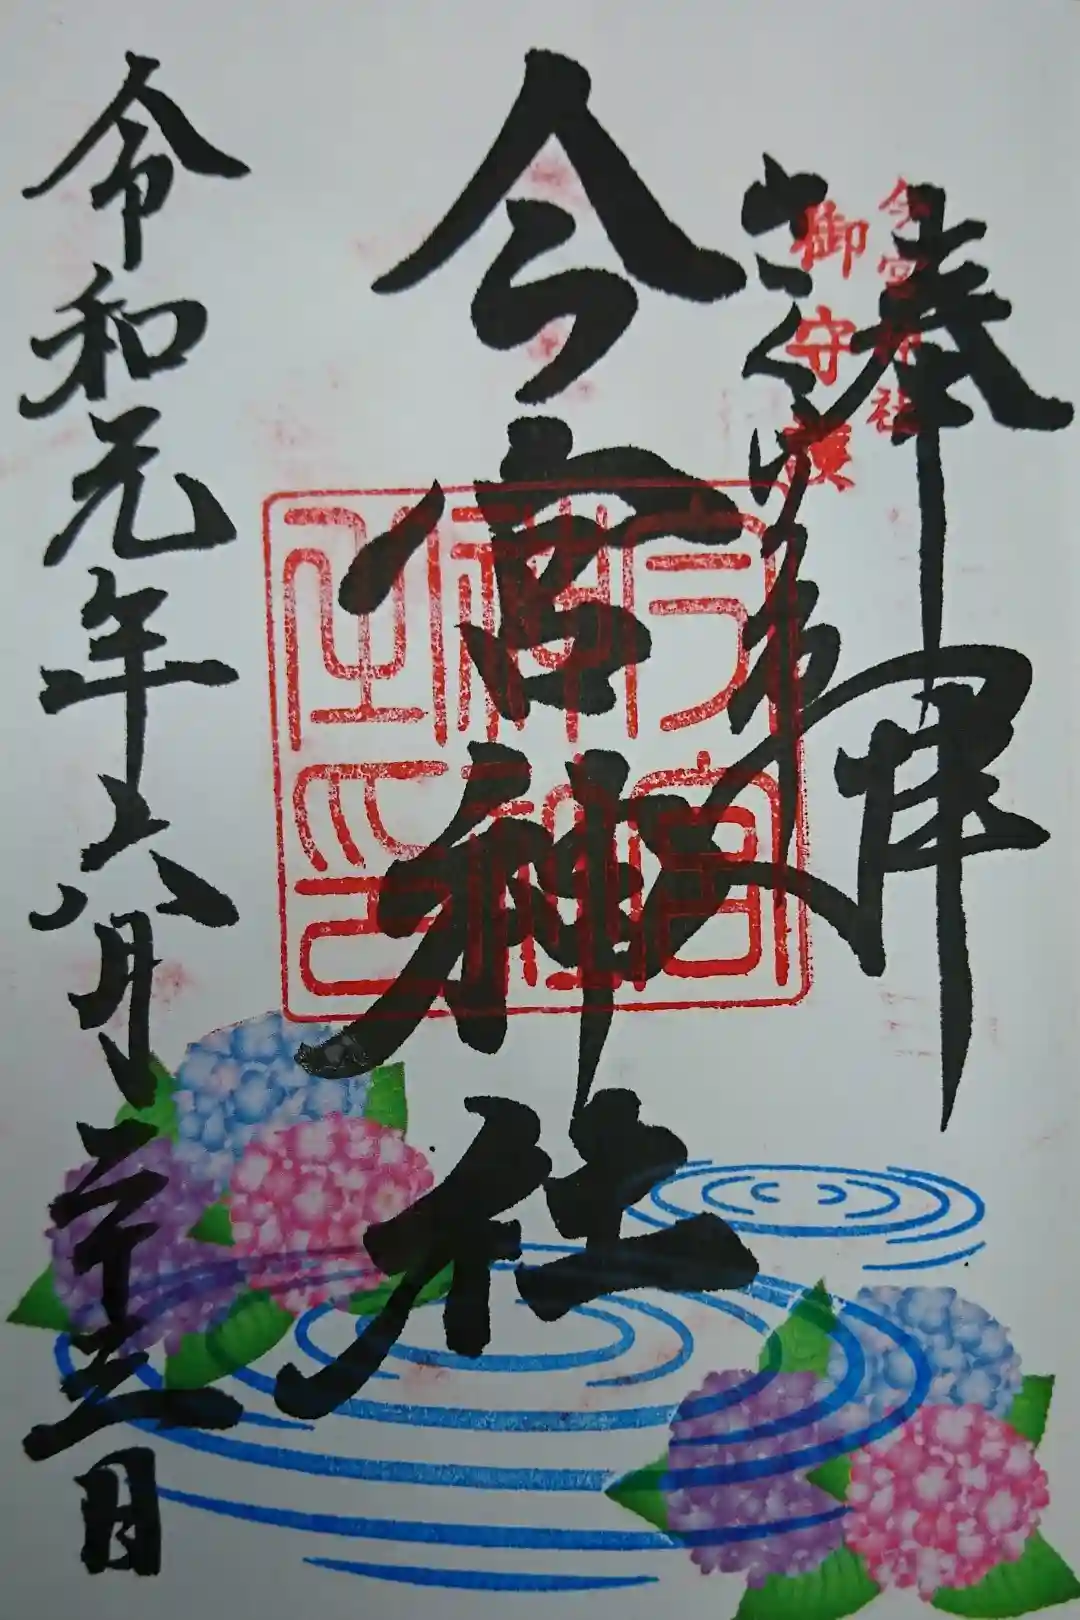 奉拝
今宮神社
御守護
さくら市
今宮神社
今宮神社之印
令和元年六月二十三日